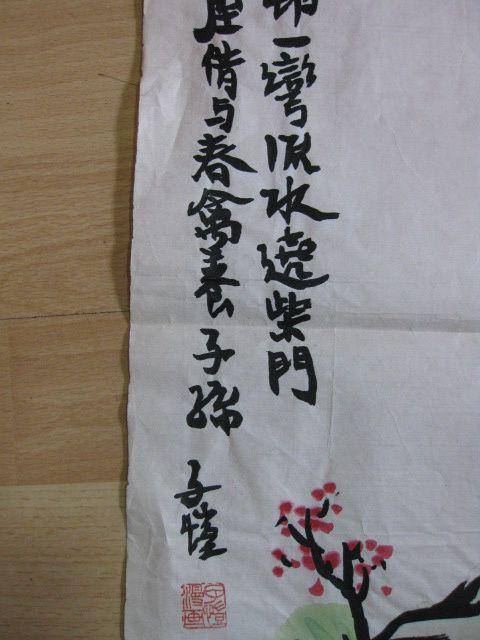 一彎流水遶柴門
借与春禽養子孫
子愷
子愷漫画